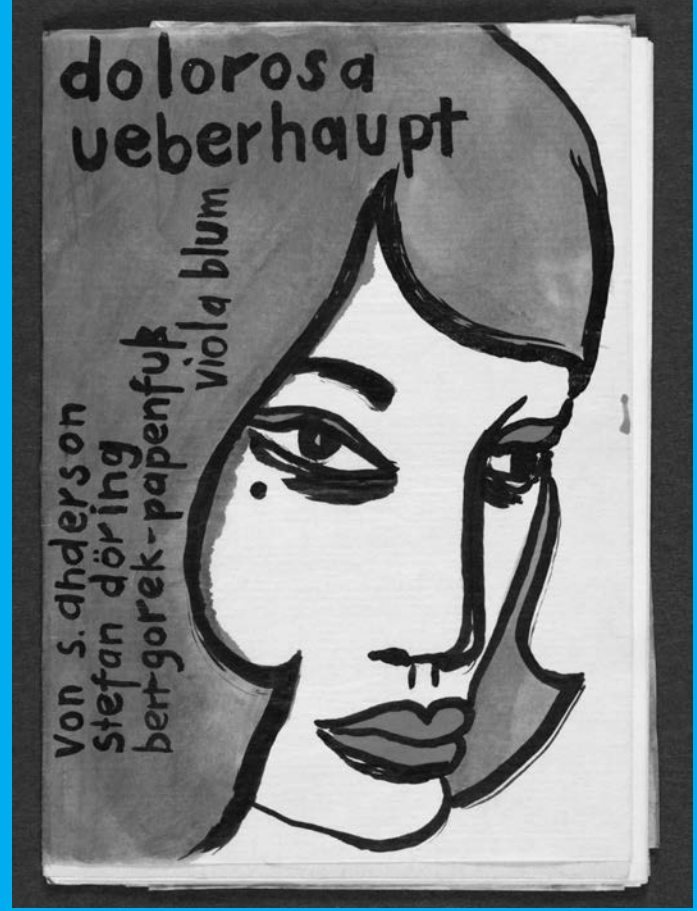 dolorosa
ueberhaupt
von s. anderson
stefan döring
bert-gorek-papenfuß
viola blum